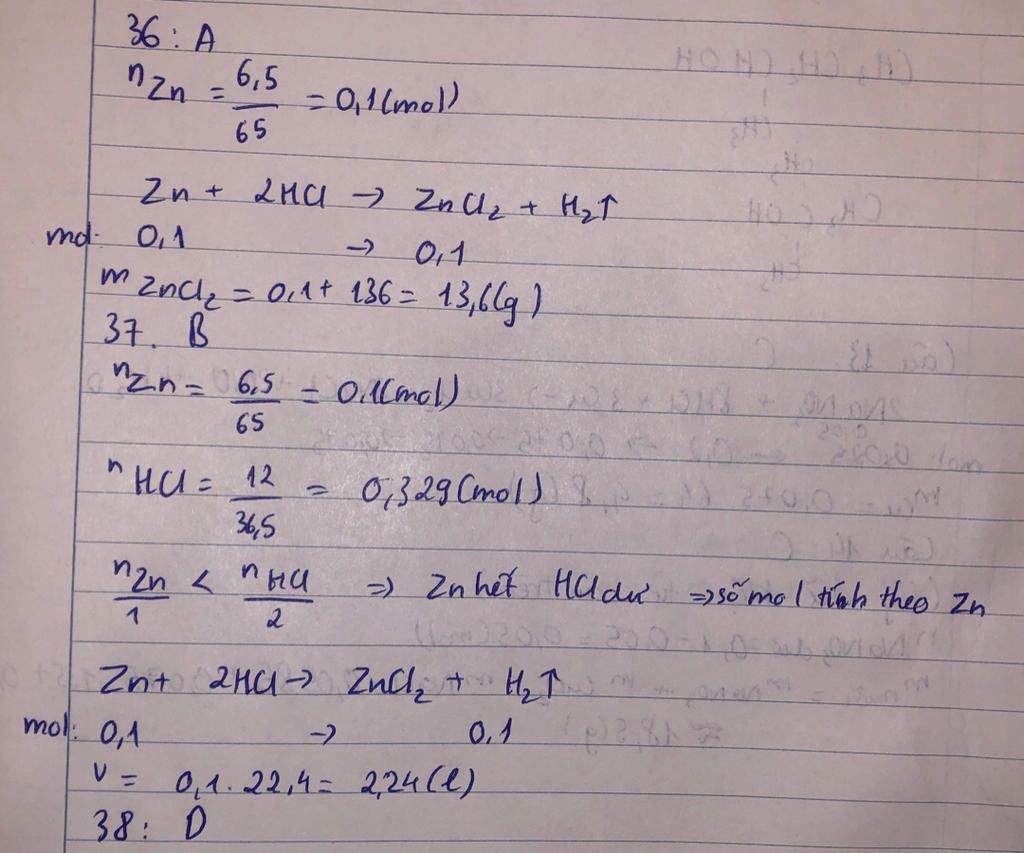 36: A
nZn = 6,5/65 = 0,1(mol)
Zn + 2HCl → ZnCl₂ + H₂↑
mol: 0,1 → 0,1
mZnCl₂ = 0,1 + 136 = 13,6(g)
37. B
nZn = 6,5/65 = 0,1(mol)
nHCl = 12/36,5 = 0,329(mol)
nZn/1 < nHCl/2 => Zn hết HCl dư => số mol tính theo Zn
Zn + 2HCl → ZnCl₂ + H₂↑
mol: 0,1 → 0,1
V = 0,1.22,4 = 2,24(l)
38: D